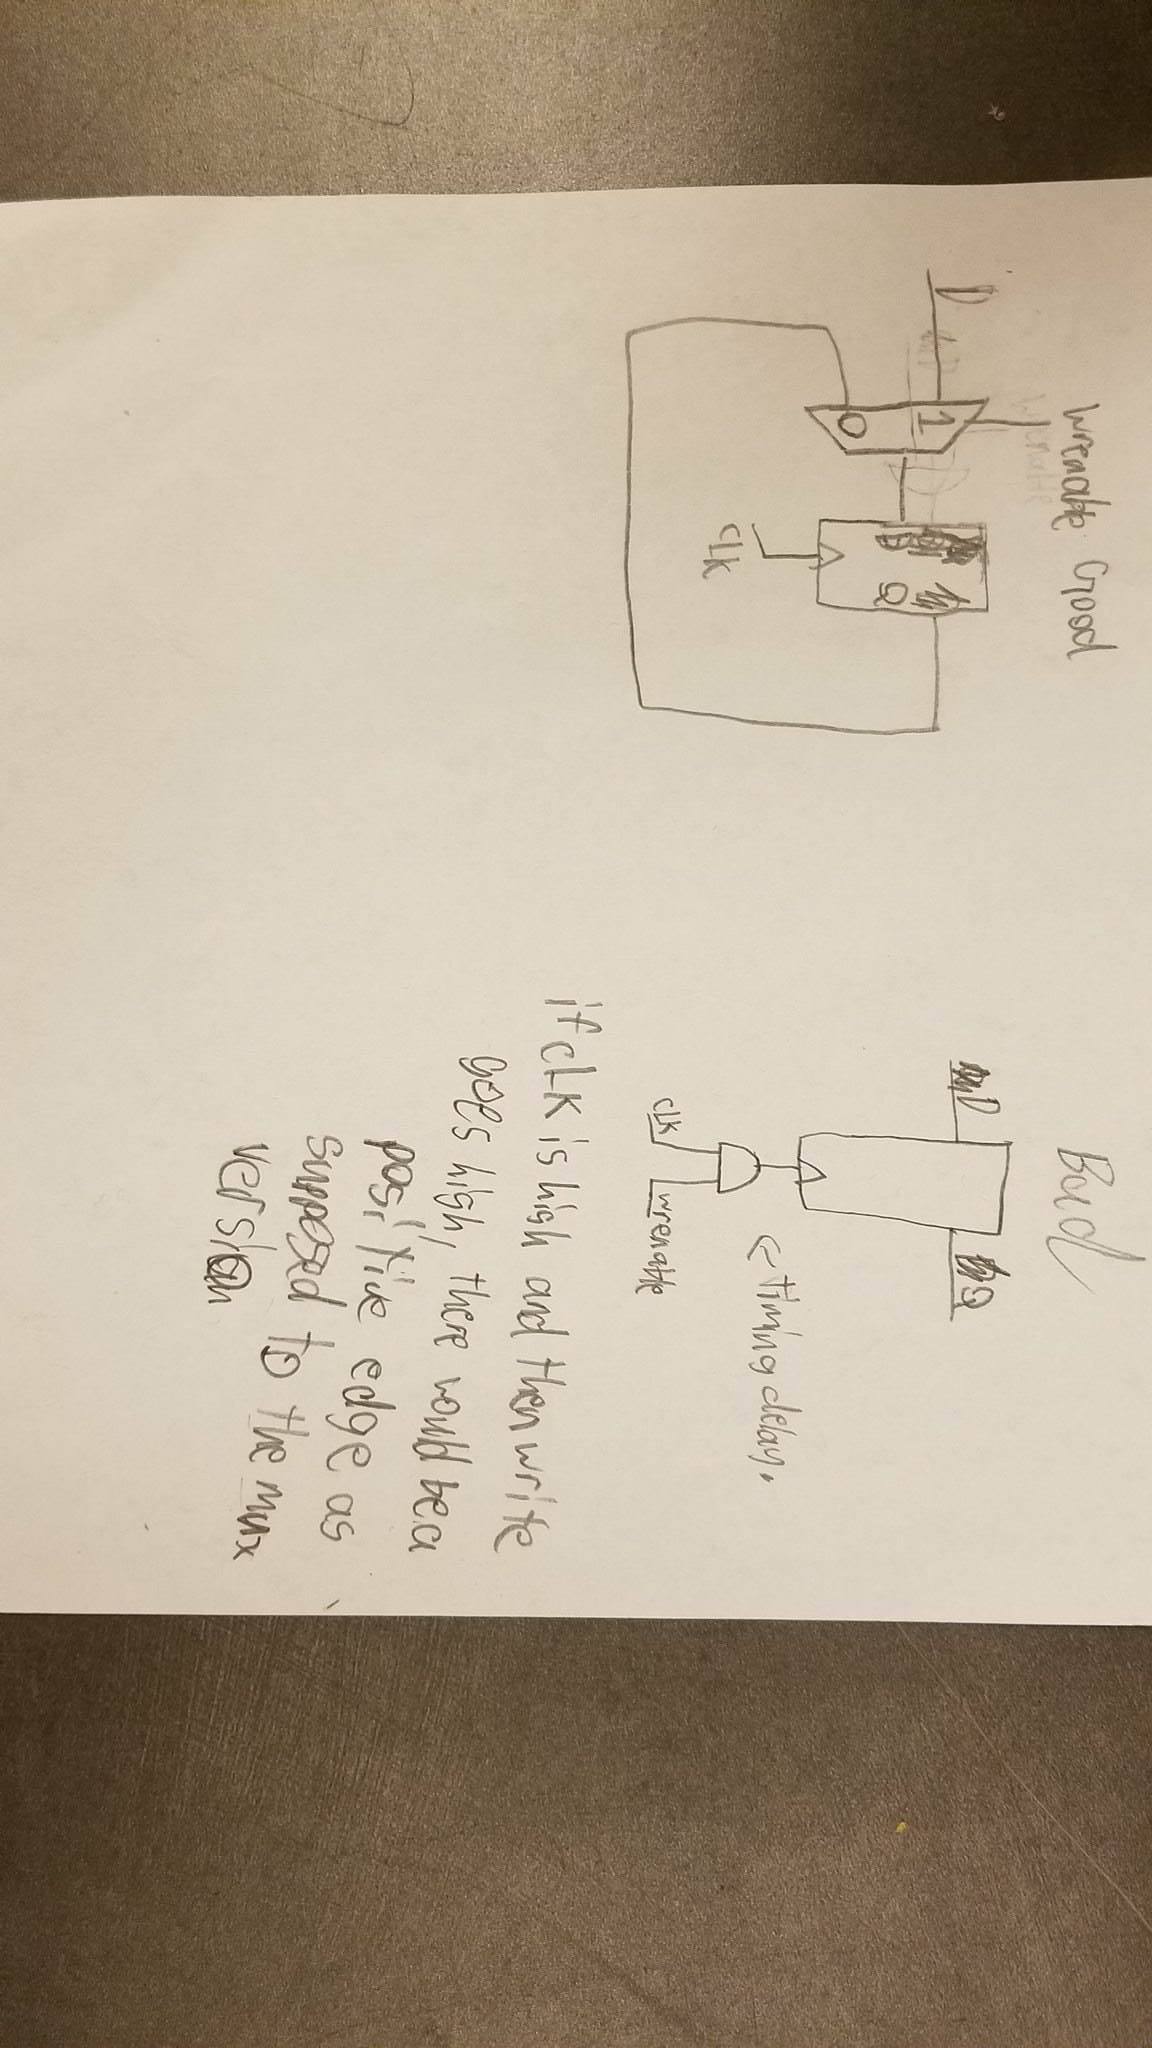 wrenable Good
D
1
0
D
Q
CLK
Bad
D
Q
← timing delay.
CLK
wrenable
if cLK is high and then write
goes high, there would be a
positive edge as
supposed to the mux
version